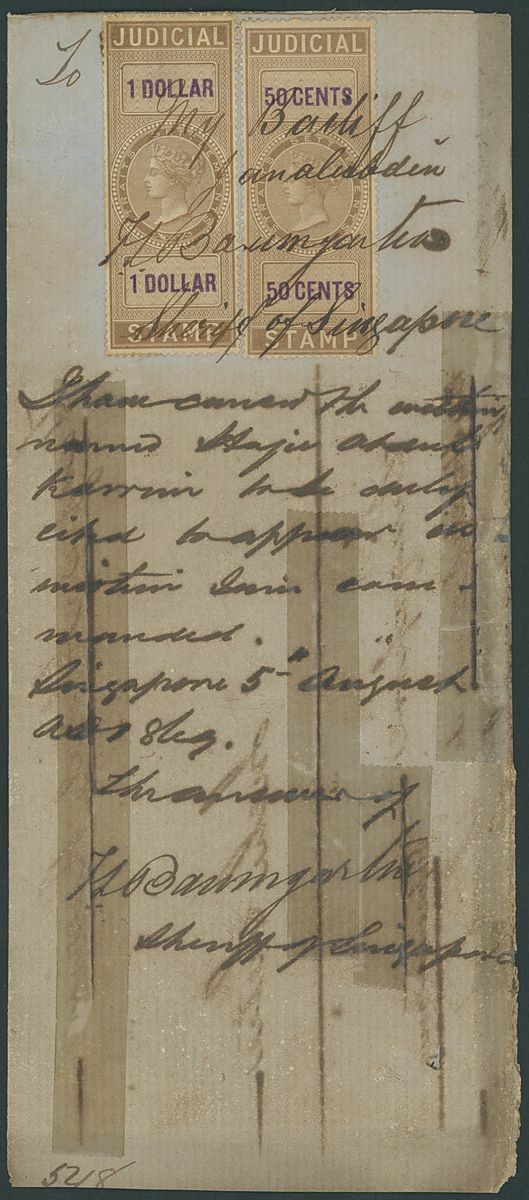 To
JUDICIAL JUDICIAL
1 DOLLAR 50 CENTS
STRAITS SETTLEMENTS
My Bailiff
H Baumgarten
1 DOLLAR 50 CENTS
Sheriff of Singapore
STAMP STAMP
I have caused the within
named Hajie Abdul
Karrim to be duly
cited to appear as
within I am com-
manded.
Singapore 5th August
A.D. 1869.
The answer of
H Baumgarten
Sheriff of Singapore